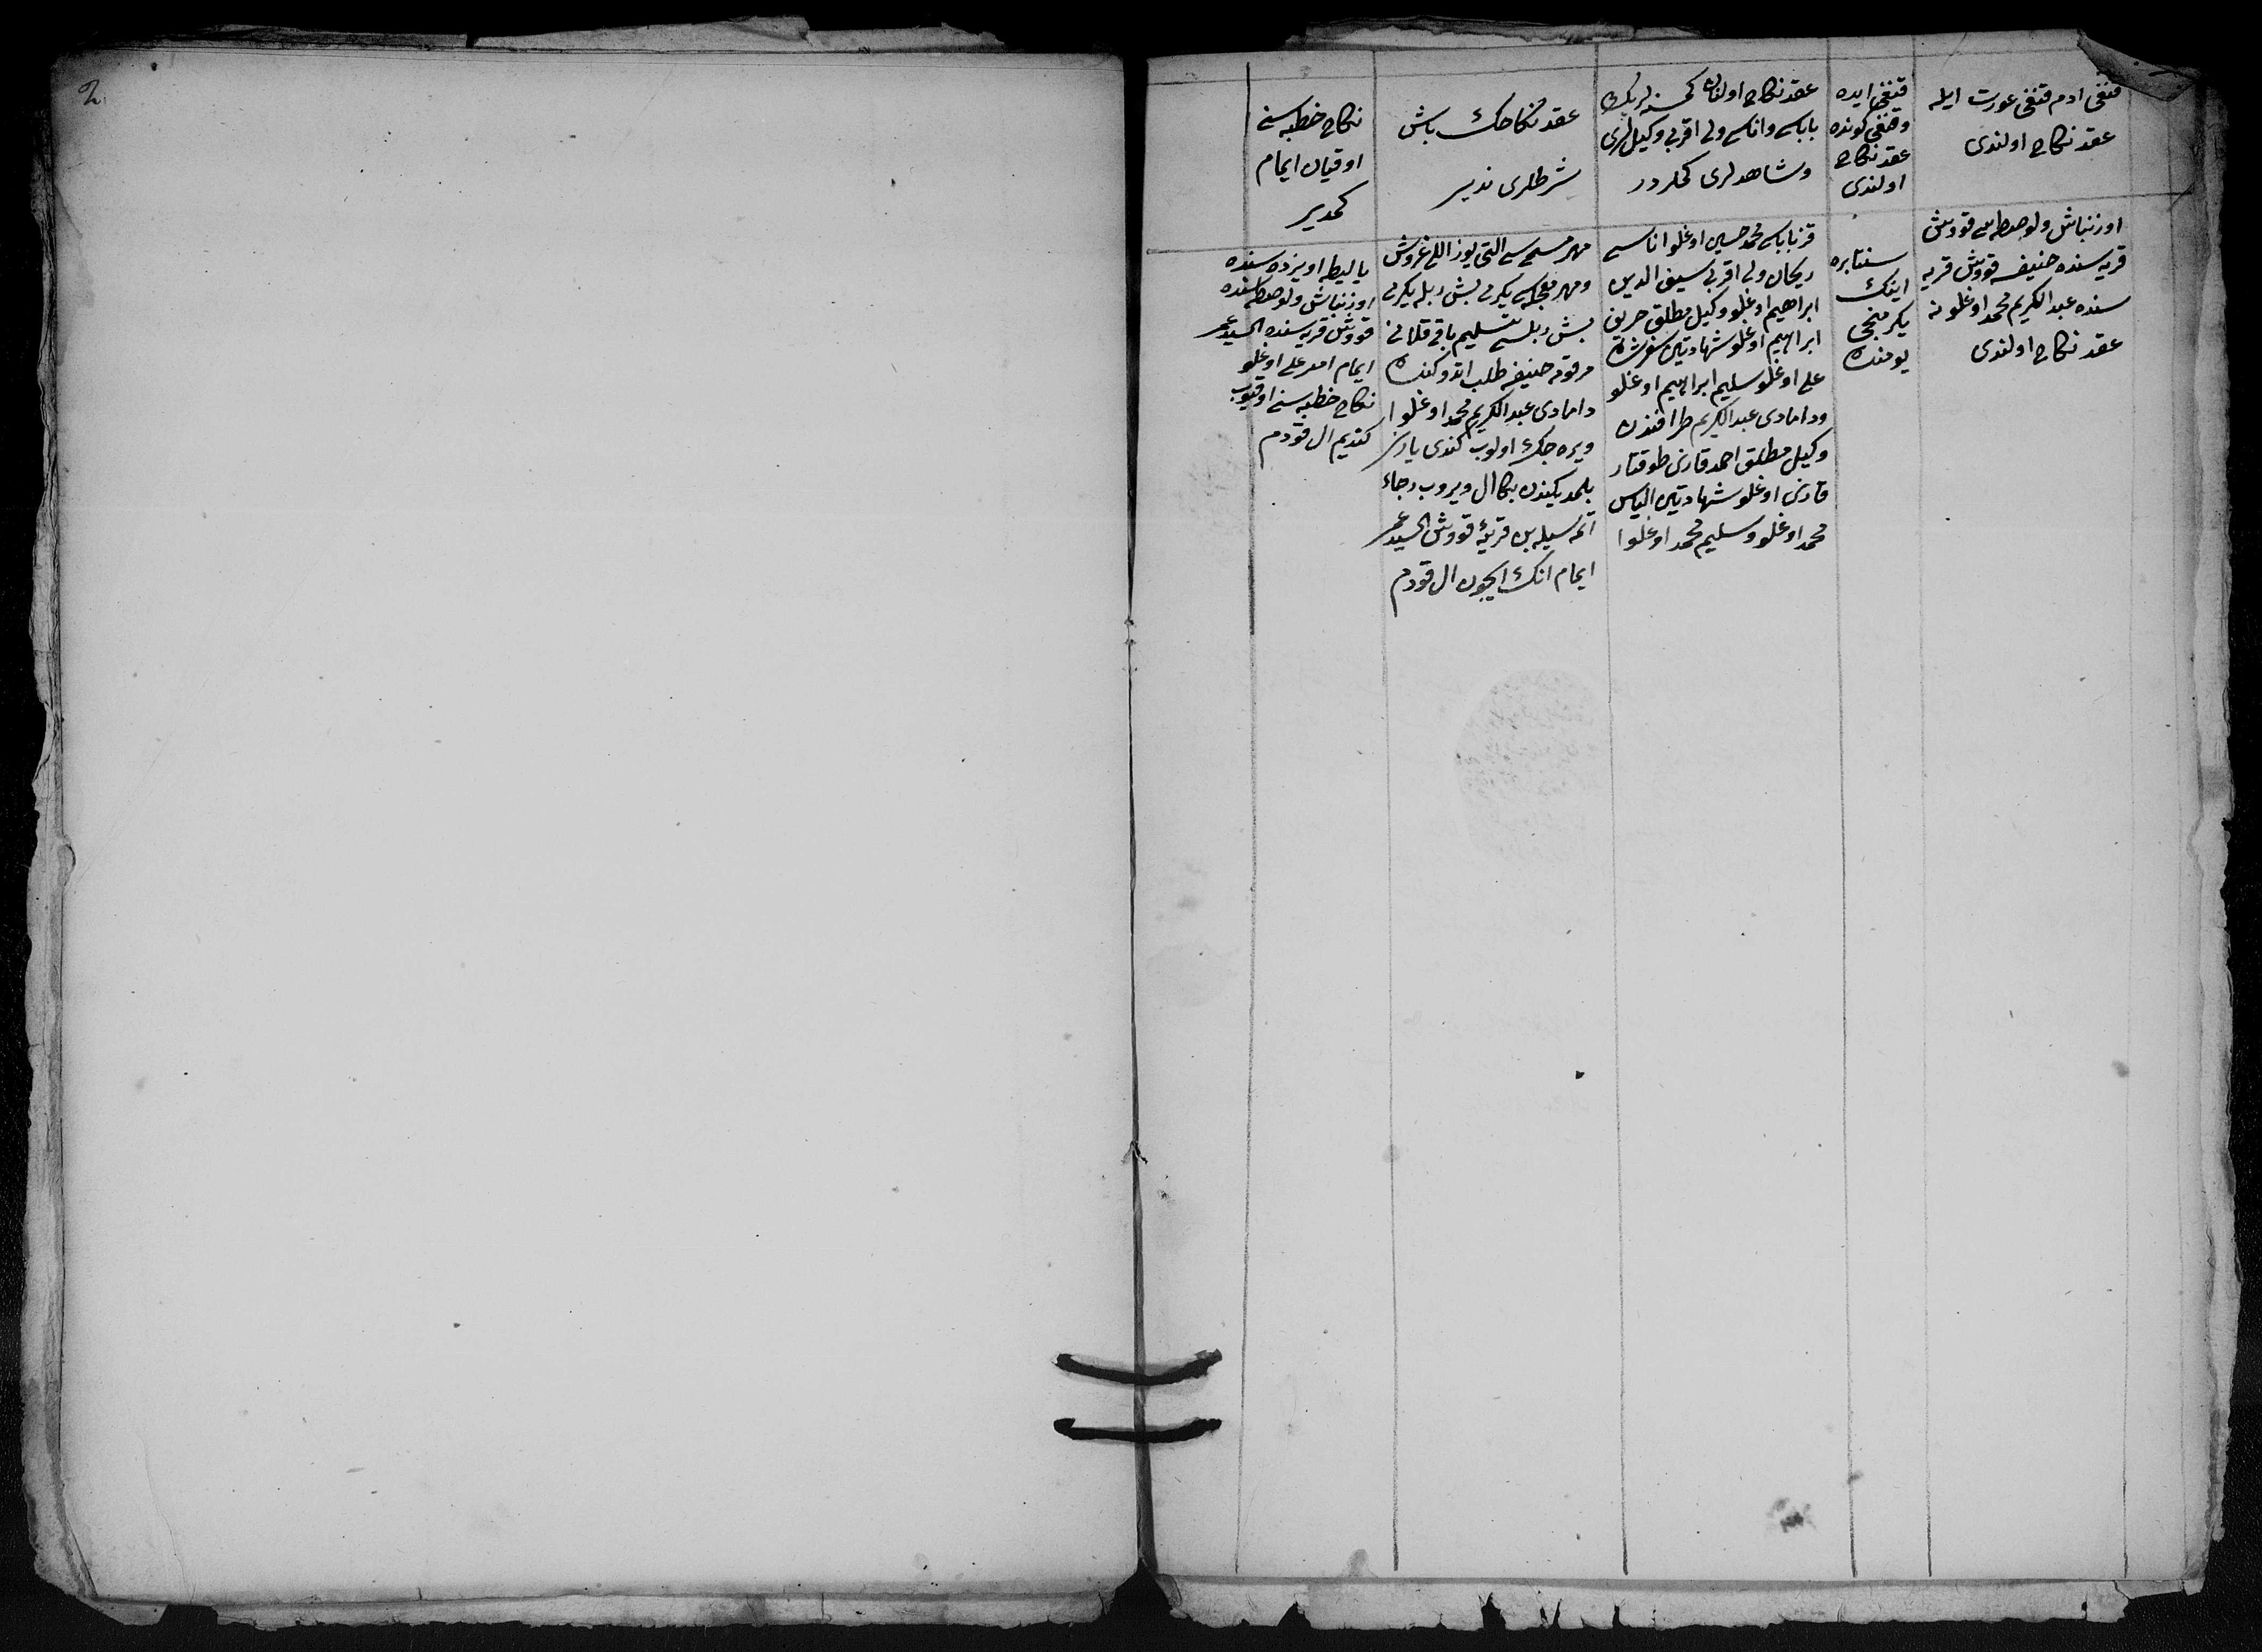 قنغی ادم قنغی عورت ایله
عقد نكاح اولندی
قنغی ایده
وقنغی كونده
عقد نكاح
اولندی
عقد نكاح اولنان كمسنه لریك
باباسی واناسی ولی اقربی وكیللری
وشاهدلری كملردر
عقد نكاحك باش
شرطلری ندیر
نكاح خطبه سنی
اوقیان ایمام
كمدیر
اوزنباش ولوصطه سی قودیش
قریه سنده حنیفه قودیش قریه
سنده عبدالكریم محمد اوغلونه
عقد نكاح اولندی
سنتابره
اینك
یكرمنجی
یومنده
قز باباسی محمد حسین اوغلو اناسی
ریحان ولی اقربی سیف الدین
ابراهیم اوغلو وكیل مطلق
ابراهیم اوغلو شهادتین
علی اوغلو سلیم ابراهیم اوغلو
ودامادی عبدالكریم طرافندن
وكیل مطلق احمد قاری طوقتار
قاری اوغلو شهادتین الیاس
محمد اوغلو وسلیم محمد اوغلو
مهر مسمی سی التی یوز اللی غروش
ومهر معجلسی یكرمی بش ربله یكرمی
بش ربلسی تسلیم باقی قلانی
مرقومه حنیفه طلب اتدوكنده
دامادی عبدالكریم محمد اوغلو
ویره جك اولوب كندی یازی
بلمدیكندن بكا ال ویروب رجاء
اتمه سیله بن قریۀ قودیش السید عمر
ایمام انك ایچون ال قودم
یالیطه اویزده سنده
اوزنباش ولوصطه سنده
قودیش قریه سنده السید عمر
ایمام امیر علی اوغلو
نكاح خطبه سنی اوقیوب
كندیم ال قودم
2